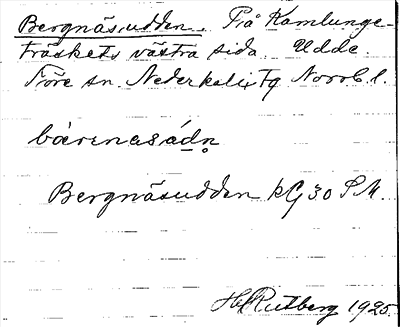 Bergnäsudden. På Kamlunge-
träskets västra sida. Udde.
Töre sn. Nederkalix Tg Norrb. l.
bärenasádn
Bergnäsudden kG 30 S M.
H Rutberg 1925.